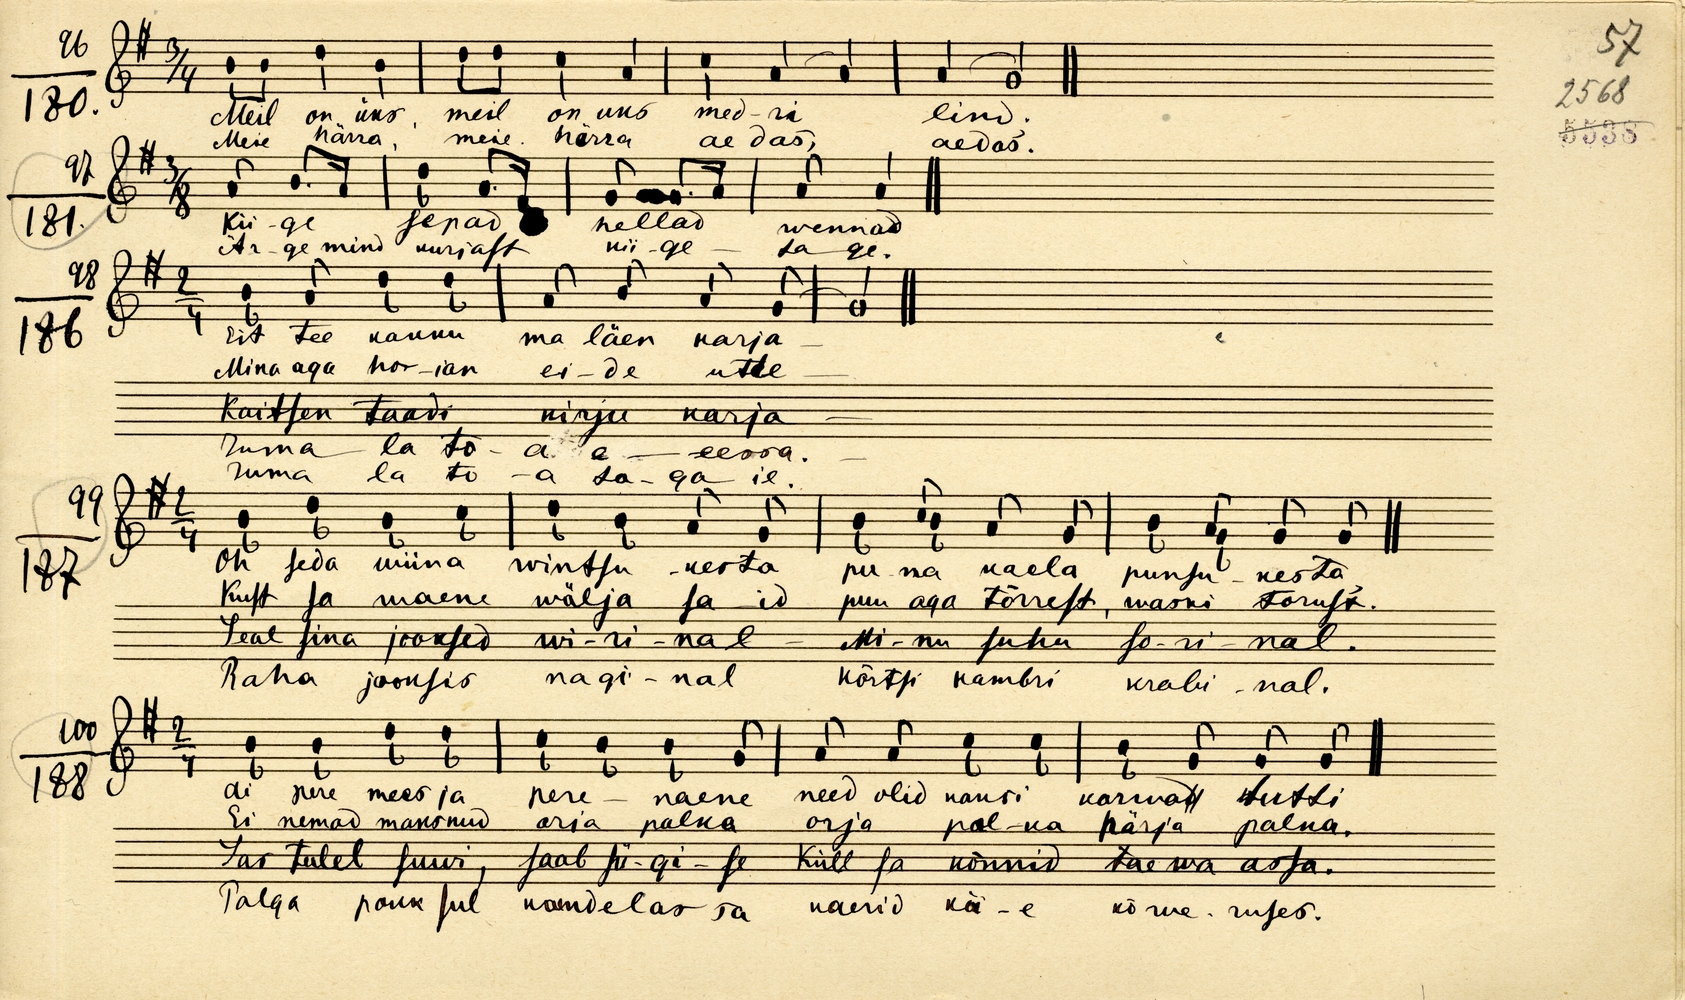 57
2568
5538
96
180.
3/4
Meil on üks, meil on uks med-ri lind.
Meie härra, meie härra aedas, aedas.
97
181.
3/8
Kii-ge sepad hellad wennad
Är-ge mind kurjast kii-ge - ta ge.
98
186
2/4
Eit tee kakku ma läen karja -
Mina aga hor-jan ei-de utte -
Kaitsen taadi kirju karja -
Juma - la to - a e - eessa. -
Juma la to - a ta - ga ie.
99
187
2/4
Oh seda wiina wintsu - kesta pu-na kaela punsu - kesta
Kust sa maene wälja sa - id puu aga tõrrest, waski torust.
Seal sina jooksed wi - ri - nal - Mi - nu suhu so - ri - nal.
Raha jooksis nagi - nal kõrtsi kambri krabi - nal.
100
188
2/4
Ai pere mees ja pere - naene need olid kaksi karwast tutti
Ei nemad maksnud orja palka orja pal-ka härja palka.
Sas tulel suwi, saab sü - gi - se Küll sa kõnnid taewa assa.
Palga pauk sul kandelas sa kaerid kä - e kõrwe - ruses.